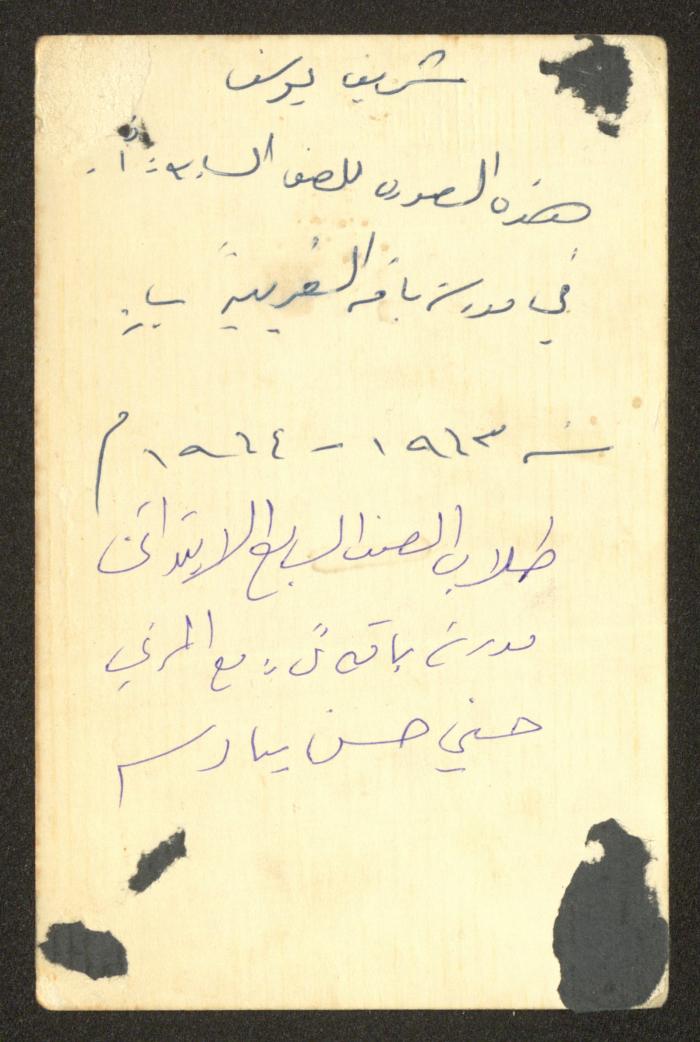 شريف يوسف
هذه الصورة للصف السابع "أ"
في مدرسة باقة الغربية
سنة ١٩٦٣ - ١٩٦٤ م
طلاب الصف السابع الابتدائي
مدرسة باقة مع المربي
حسني حسن بيادسه